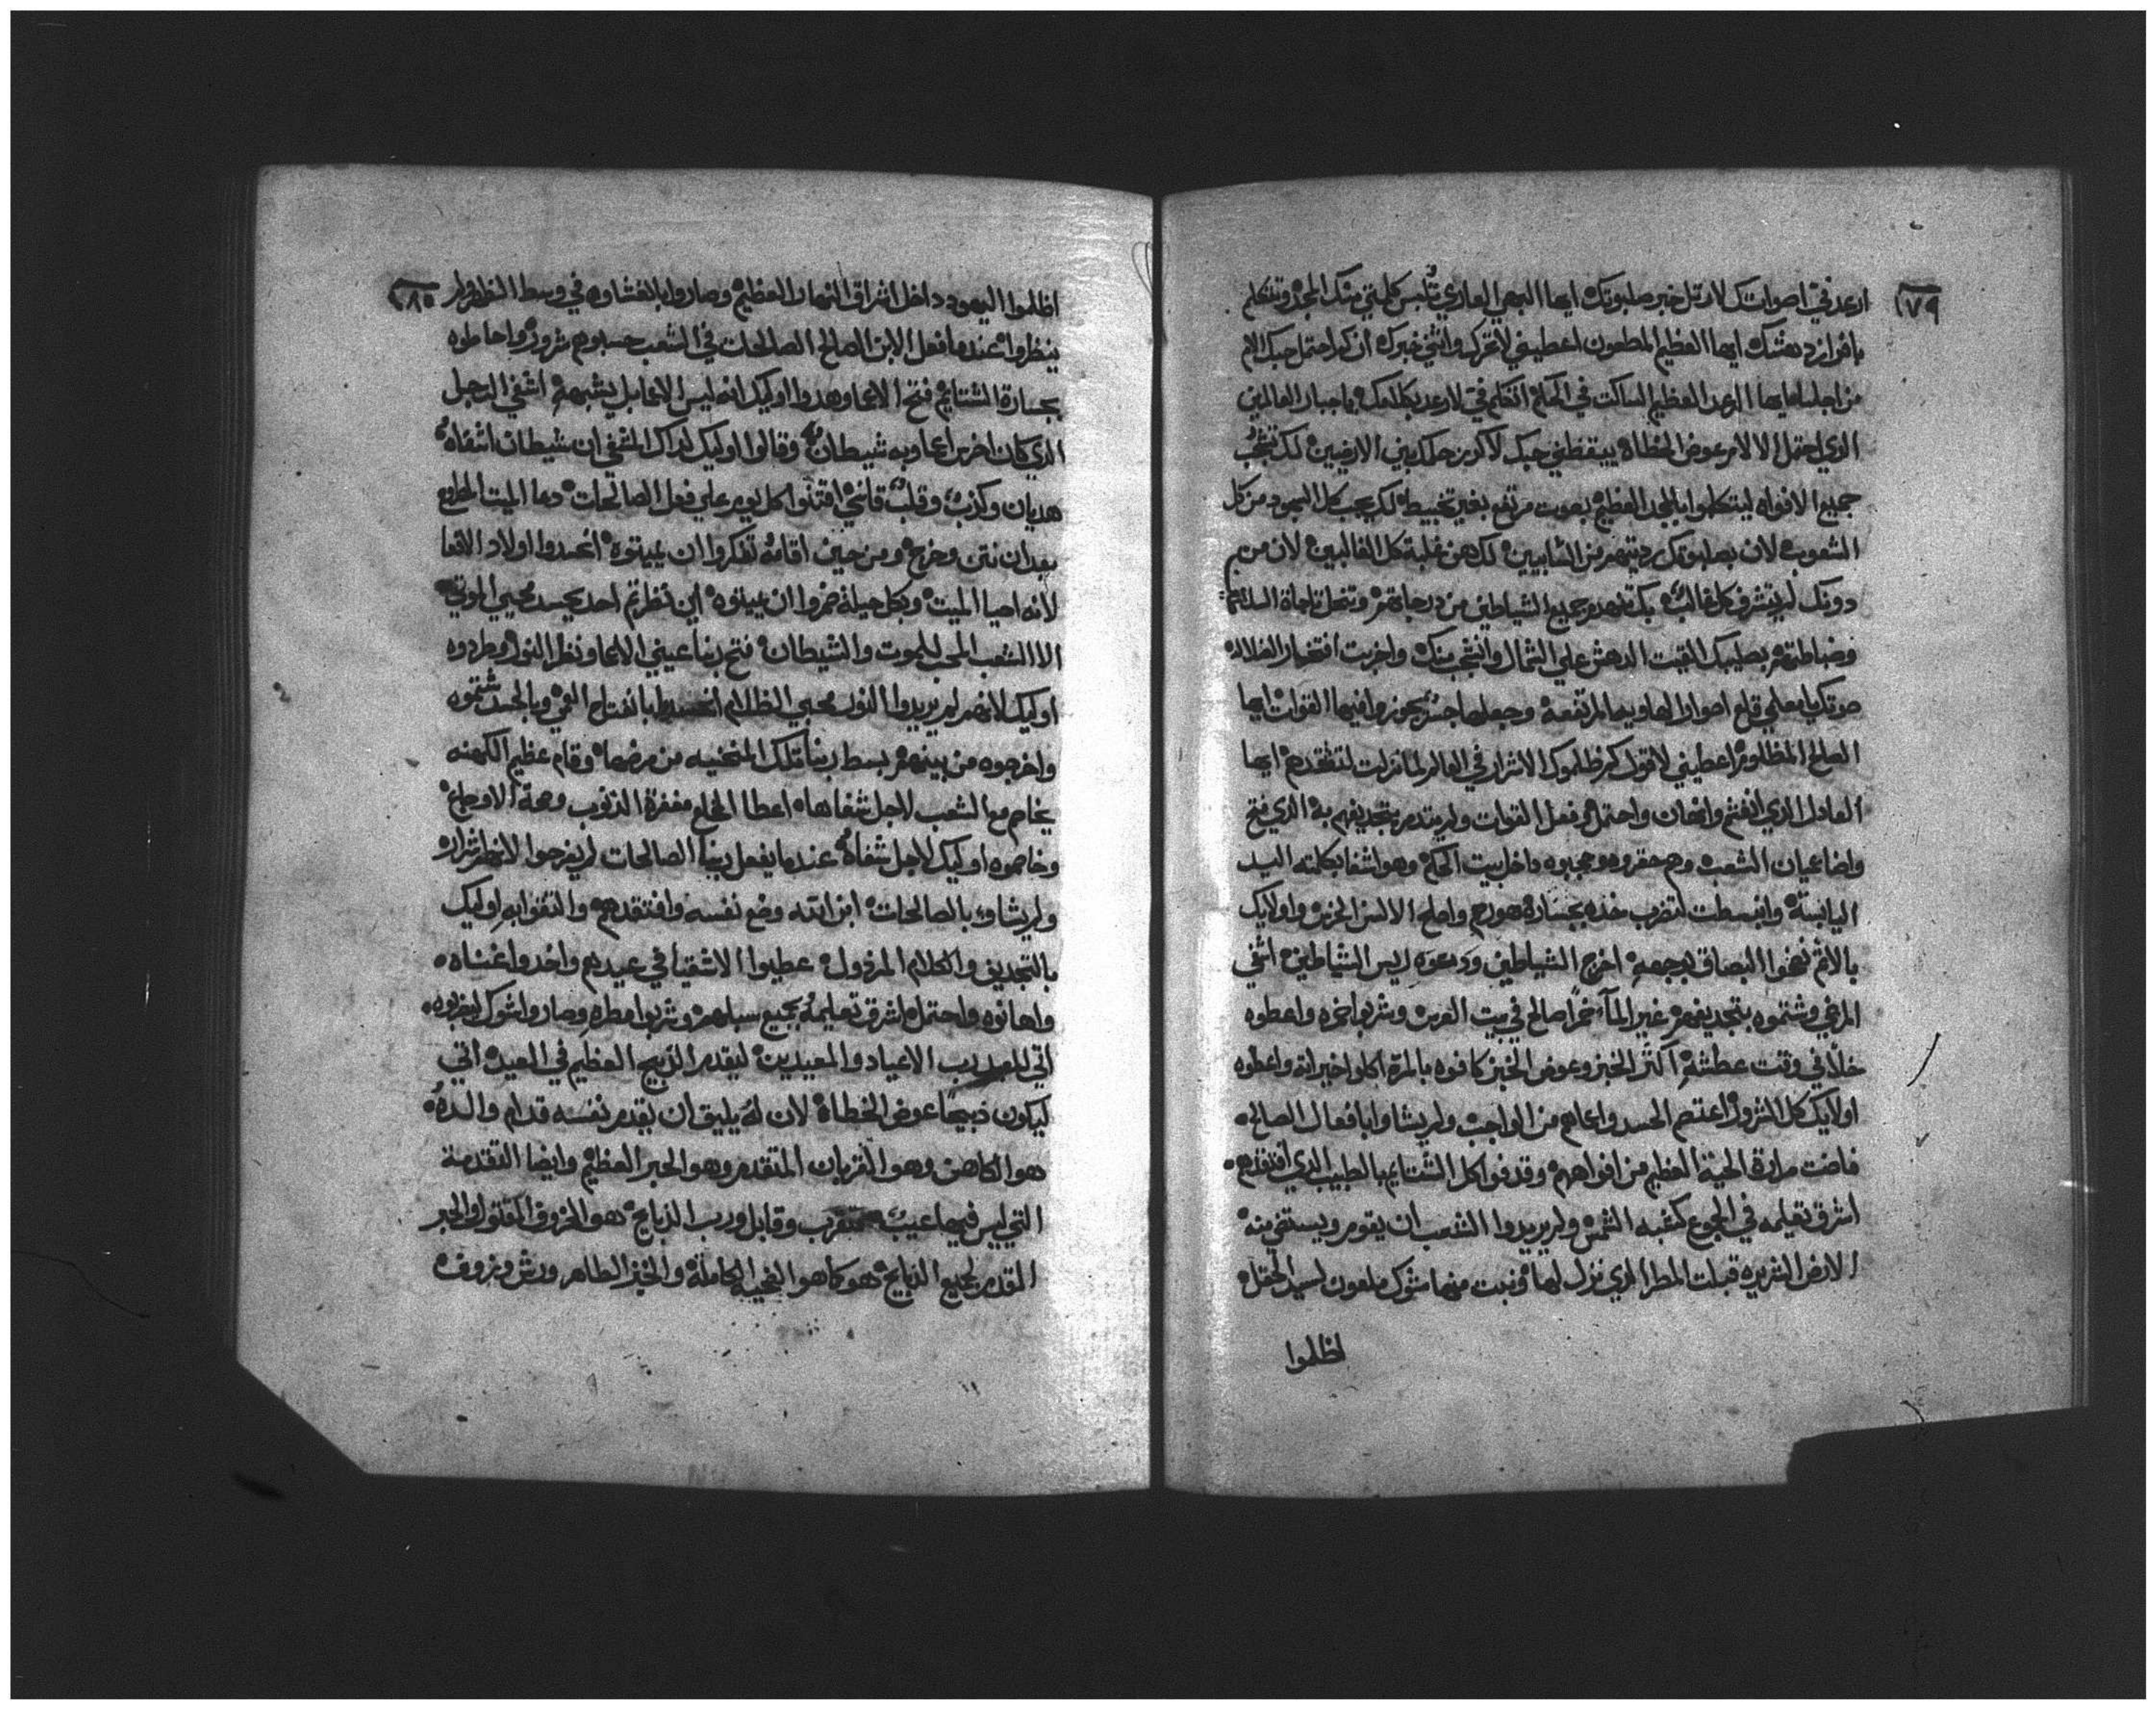 ٧٩
ارعد في اصواتك لارتل خبر صلبوتك ايها البهي العاري تلبس كلمتي منك المجد وتتكلم
بافراز دهشك ايها العظيم المطعون اعطيني لاتحرك وانشي خبرك ان كم احتمل حبك الالم
من اجلنا ايها الرعد العظيم الساكت في الحكم اتكلم في لارعد بكلامك يا جبار العالمين
الذي احتمل الالام عوض الخطاه ييقظني حبك لاكرز حكك بين الارضيين لك تتعجب
جميع الافواه ليتكلموا بالمجد العظيم بصوت مرتفع بغير تخبيط لك يعجب كل اليهود من كل
الشعوب لان بصلبوتك رديتهم من السابيين لك هي غلبة كل الغالبين لان من هم
دونك لم يتشرف كل غالب بك تنهدم جميع الشياطين من درجاتهم وتنحل تاجاة السلاطين
وضباطتهم بصليبك القيت الدهش علي الشمال وانتجب منك واخزيت افتخار الضلاله
صوتك يا معلمي قلع اصوار الهاويه المرتفعه وجعلها جسر يجوزوا فيها القوات ايها
الصالح المظلوم اعطيني لاقول كم ظلموك الاشرار في العالم لما نزلت لتفتقدهم ايها
العادل الذي انغشم وانهان واحتمل فعل القوات ولم يتدمر بتجديفهم به الذي فتح
واضا عيان الشعب وهم حقروه وحجبوه داخل بيت الحكم وهو اشفا بكلمته اليد
اليابسة وانبسطت لتضرب خده بجسارة هو رحم واصلح الالسن الخرس واولايك
بالاثم نفخوا البصاق بوجهه اخرج الشياطين ودعوه ريس الشياطين اشفي
المرضي وشتموه بتجديفهم غير المآء خمراً صالح في بيت العرس وشربوا خمره واعطوه
خلاً في وقت عطشه اكثر الخبز وعوض الخبز كافوه بالمرة اكلوا خيراته واعطوه
اولايك كل الشرور اعتصم الحسد واعماهم من الواجب ولم يشاوا بافعال الصالح
فاضت مرارة الحية العظيم من افواههم وقدفوا كل الشتايم بالطبيب الذي افتقدهم
اشرق تعليمه في الجموع كشبه الشمس ولم يريدوا الشعب ان يقوم ويستضي منه
الارض الشريره قبلت المطر الذي نزل لها ونبت منها شوك ملعون لسيد الحقله
اظلموا
٨٠
اظلموا اليهود داخل اشراق النهار العظيم وصاروا بالغشاوه في وسط النظر ولم
ينظروا عندما فعل الابن الصالح الصالحات في الشعب حسبوهم شرور واحاطوه
بجسارة الشتايم فتح الاعما وهدوا اوليك انه ليس الاعما بل يشبهه اشفي الرجل
الذي كان اخرس اعما وبه شيطان وقالوا اوليك لذاك المشفي ان شيطان اشفاه
هديان وكذب وقلب قاسي اقتنوا كل يوم علي فعل الصالحات دعا الميت المطروح
بعد ان نتن وخرج ومن حين اقامه تفكروا ان يميتوه انحسدوا اولاد الافعا
لانه احيا الميت وبكل حيلة ضمروا ان يميتوه اين نظرتم احد يحسد محيي الموتي
الا الشعب المحب للموت والشيطان فتح ربنا عيني الاعما ونظر النور وطردوه
اوليك لانهم لم يريدوا النور محبي الظلام انحسدوا بانفتاح العمي وبالحسد شتموه
واخرجوه من بينهم بسط ربنا تلك المنحنيه من مرضها وقام عظيم الكهنه
يخاصم مع الشعب لاجل شفاها اعطا المخلع مغفرة الذنوب وصحة الاوجاع
وخاصموه اوليك لاجل شفاه عندما يفعل ربنا الصالحات لم يفرحوا لانهم اشرار
ولم يشاوا بالصالحات ابن الله وضع نفسه وافتقدهم والتقوا به اوليك
بالتجديف والكلام المرذول عطيوا الاشقيا في عيدهم واخدوا غناه
واهانوه واحتمل اشرق تعليمه بجميع سبلهم وشربوا مطره وصاروا شوك ليضربوه
اتي للعيد رب الاعياد والمعيدين ليقدم الذبيح العظيم في العيد اتي
ليكون ذبيحاً عوض الخطاة لان له يليق ان يقدم نفسه قدام والده
هو الكاهن وهو القربان المتقدم وهو الحبر العظيم وايضا التقدمة
التي ليس فيها عيب متقرب وقابل ورب الذبايح هو الخروف المقتول والحبر
المقدم لجميع الذبايح هو كما هو الضحيه الكاملة والخبز الطاهر ورش وزوفه